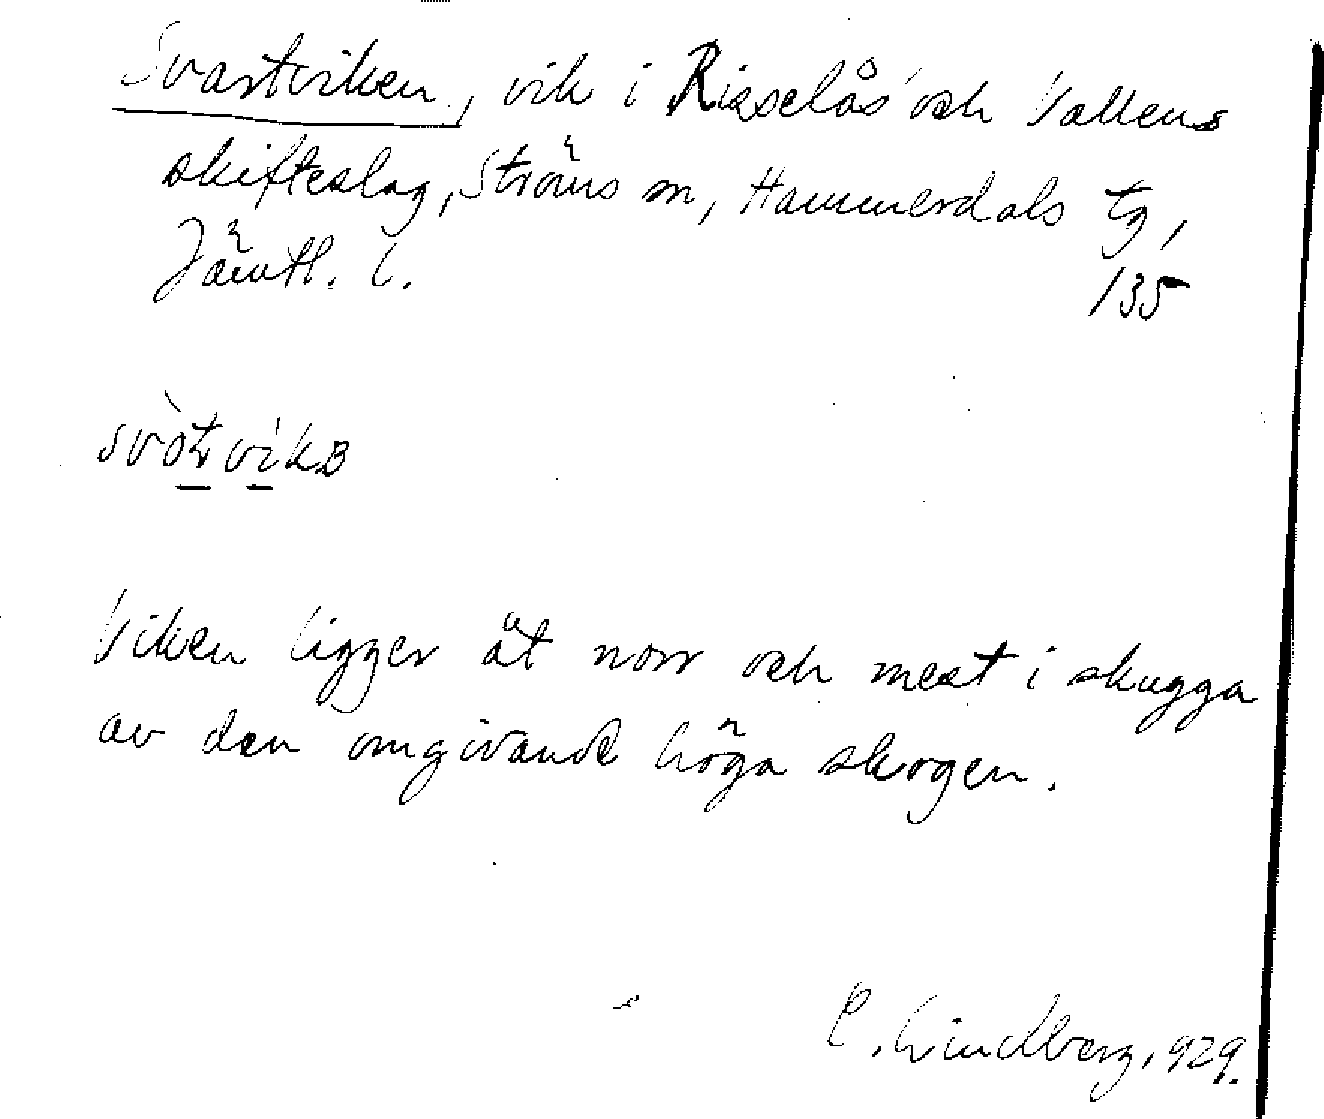 Svartviken, vik i Risselås och Vallens
skifteslag, Ströms sn, Hammerdals tg,
Jämtl. l.
135
Viken ligger åt norr och mest i skugga
av den omgivande höga skogen.
C. Lindberg, 929.